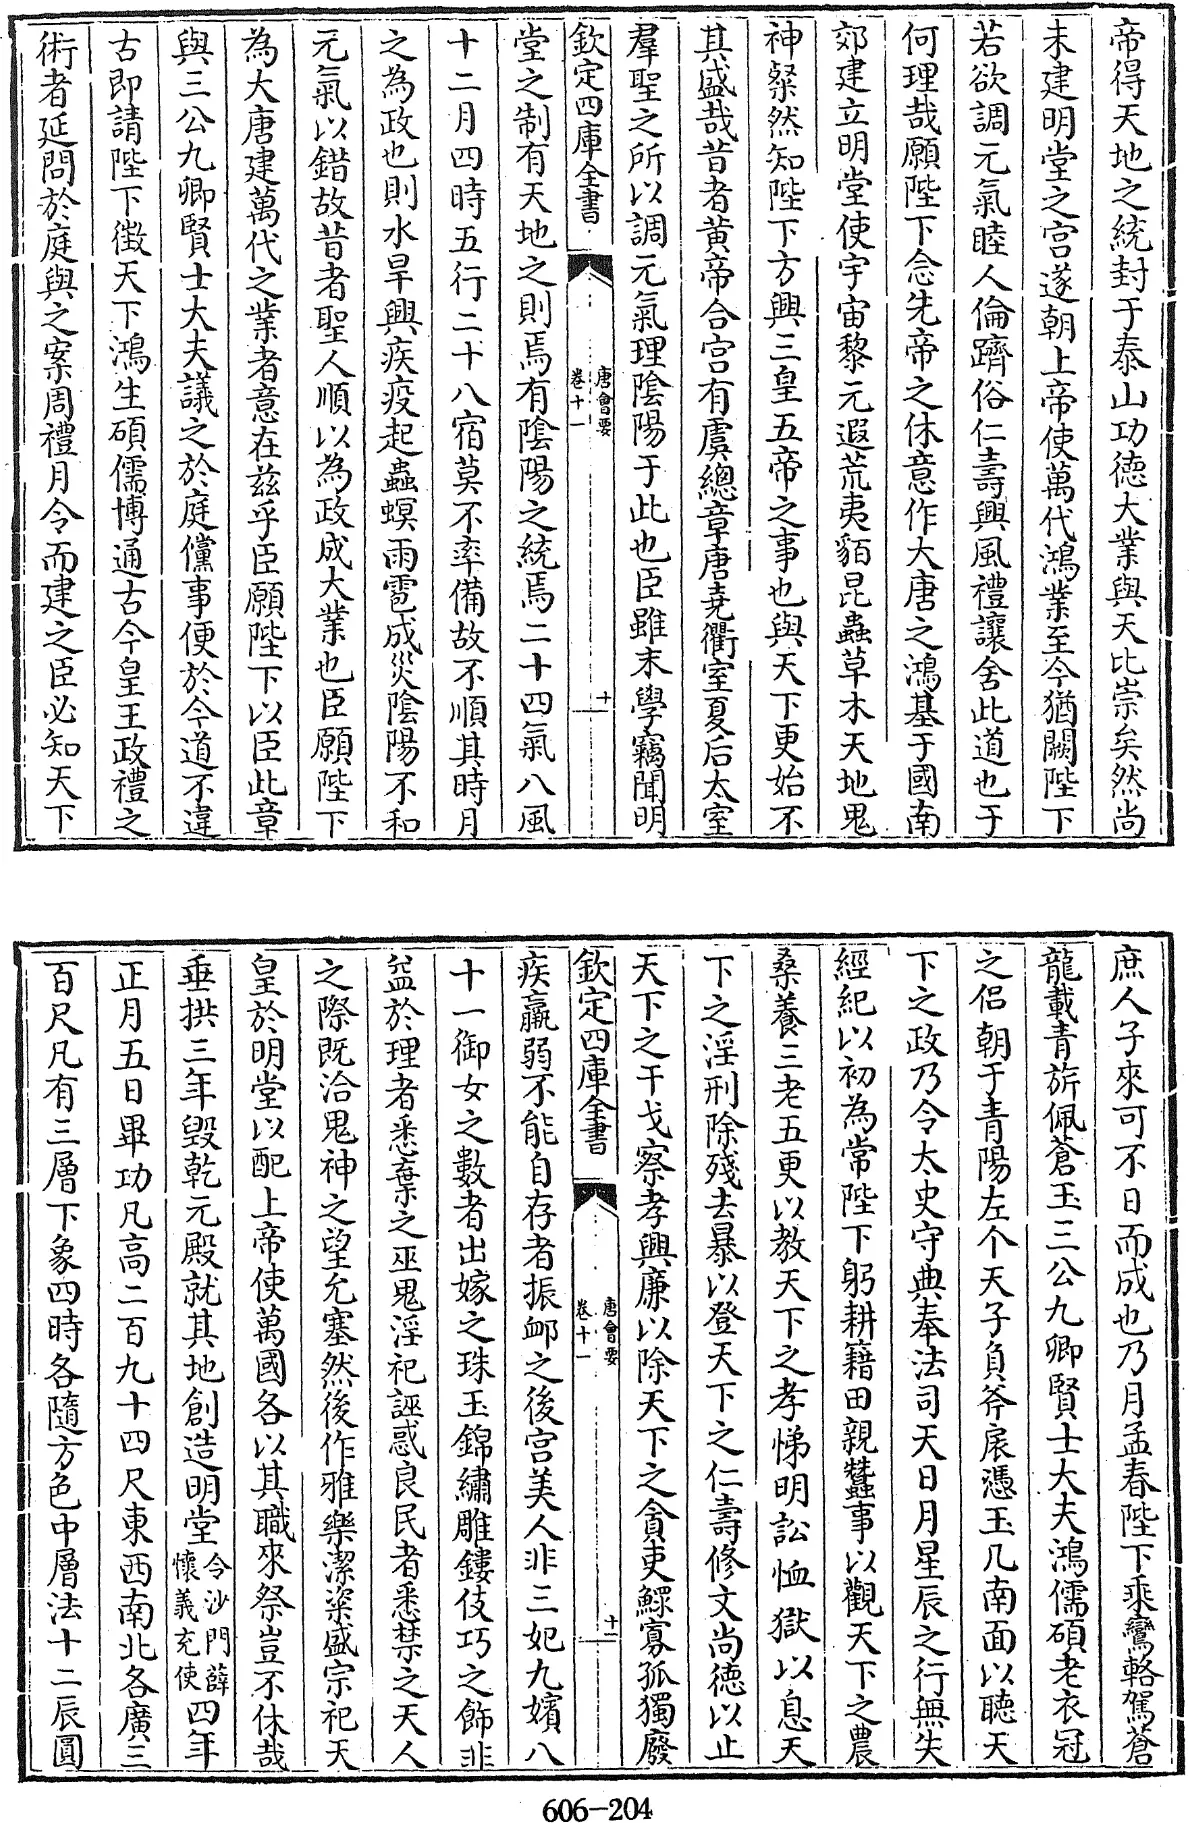 帝得天地之統封于泰山功德大業與天比崇矣然尚
未建明堂之宫遂朝上帝使萬代鴻業至今猶闕陛下
若欲調元氣睦人倫躋俗仁壽興風禮讓舍此道也于
何理哉願陛下念先帝之休意作大唐之鴻基于國南
郊建立明堂使宇宙黎元遐荒夷貊昆蟲草木天地鬼
神粲然知陛下方興三皇五帝之事也與天下更始不
其盛哉昔者黄帝合宫有虞總章唐堯衢室夏后太室
羣聖之所以調元氣理陰陽于此也臣雖末學竊聞明
欽定四庫全書
唐會要
卷十一
十
堂之制有天地之則焉有陰陽之統焉二十四氣八風
十二月四時五行二十八宿莫不率備故不順其時月
之為政也則水旱興疾疫起蟲螟雨雹成災陰陽不和
元氣以錯故昔者聖人順以為政成大業也臣願陛下
為大唐建萬代之業者意在兹乎臣願陛下以臣此章
與三公九卿賢士大夫議之於庭儻事便於今道不違
古即請陛下徵天下鴻生碩儒博通古今皇王政禮之
術者延問於庭與之案周禮月令而建之臣必知天下
庶人子來可不日而成也乃月孟春陛下乘鸞輅駕蒼
龍載青旂佩蒼玉三公九卿賢士大夫鴻儒碩老衣冠
之侣朝于青陽左个天子負斧扆憑玉几南面以聽天
下之政乃令太史守典奉法司天日月星辰之行無失
經紀以初為常陛下躬耕籍田親蠶事以觀天下之農
桑養三老五更以教天下之孝悌明訟恤獄以息天
下之淫刑除殘去暴以登天下之仁壽修文尚德以止
天下之干戈察孝興廉以除天下之貪吏鰥寡孤獨廢
欽定四庫全書
唐會要
卷十一
十一
疾羸弱不能自存者振卹之後宫美人非三妃九嬪八
十一御女之數者出嫁之珠玉錦繡雕鏤伎巧之飾非
益於理者悉棄之巫鬼淫祀誣惑良民者悉禁之天人
之際既洽鬼神之望允塞然後作雅樂潔粢盛宗祀天
皇於明堂以配上帝使萬國各以其職來祭豈不休哉
垂拱三年毁乾元殿就其地創造明堂令沙門薛懷義充使四年
正月五日畢功凡高二百九十四尺東西南北各廣三
百尺凡有三層下象四時各隨方色中層法十二辰圓
606-204